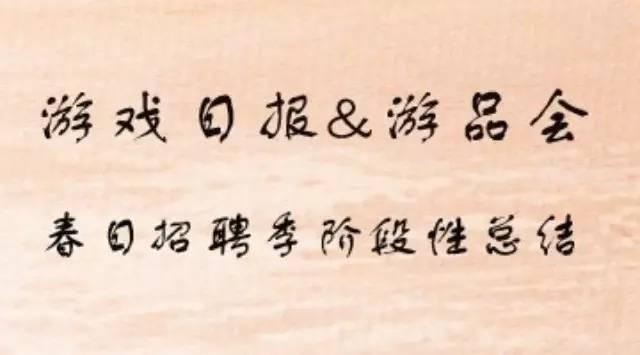 游戏日报&游品会
春日招聘季阶段性总结